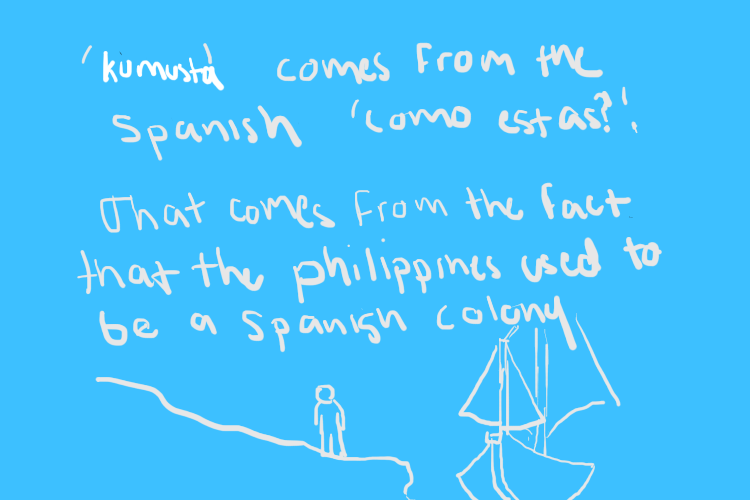 'kumusta' comes from the
Spanish 'como estas?'.
That comes from the fact
that the philippines used to
be a Spanish colony